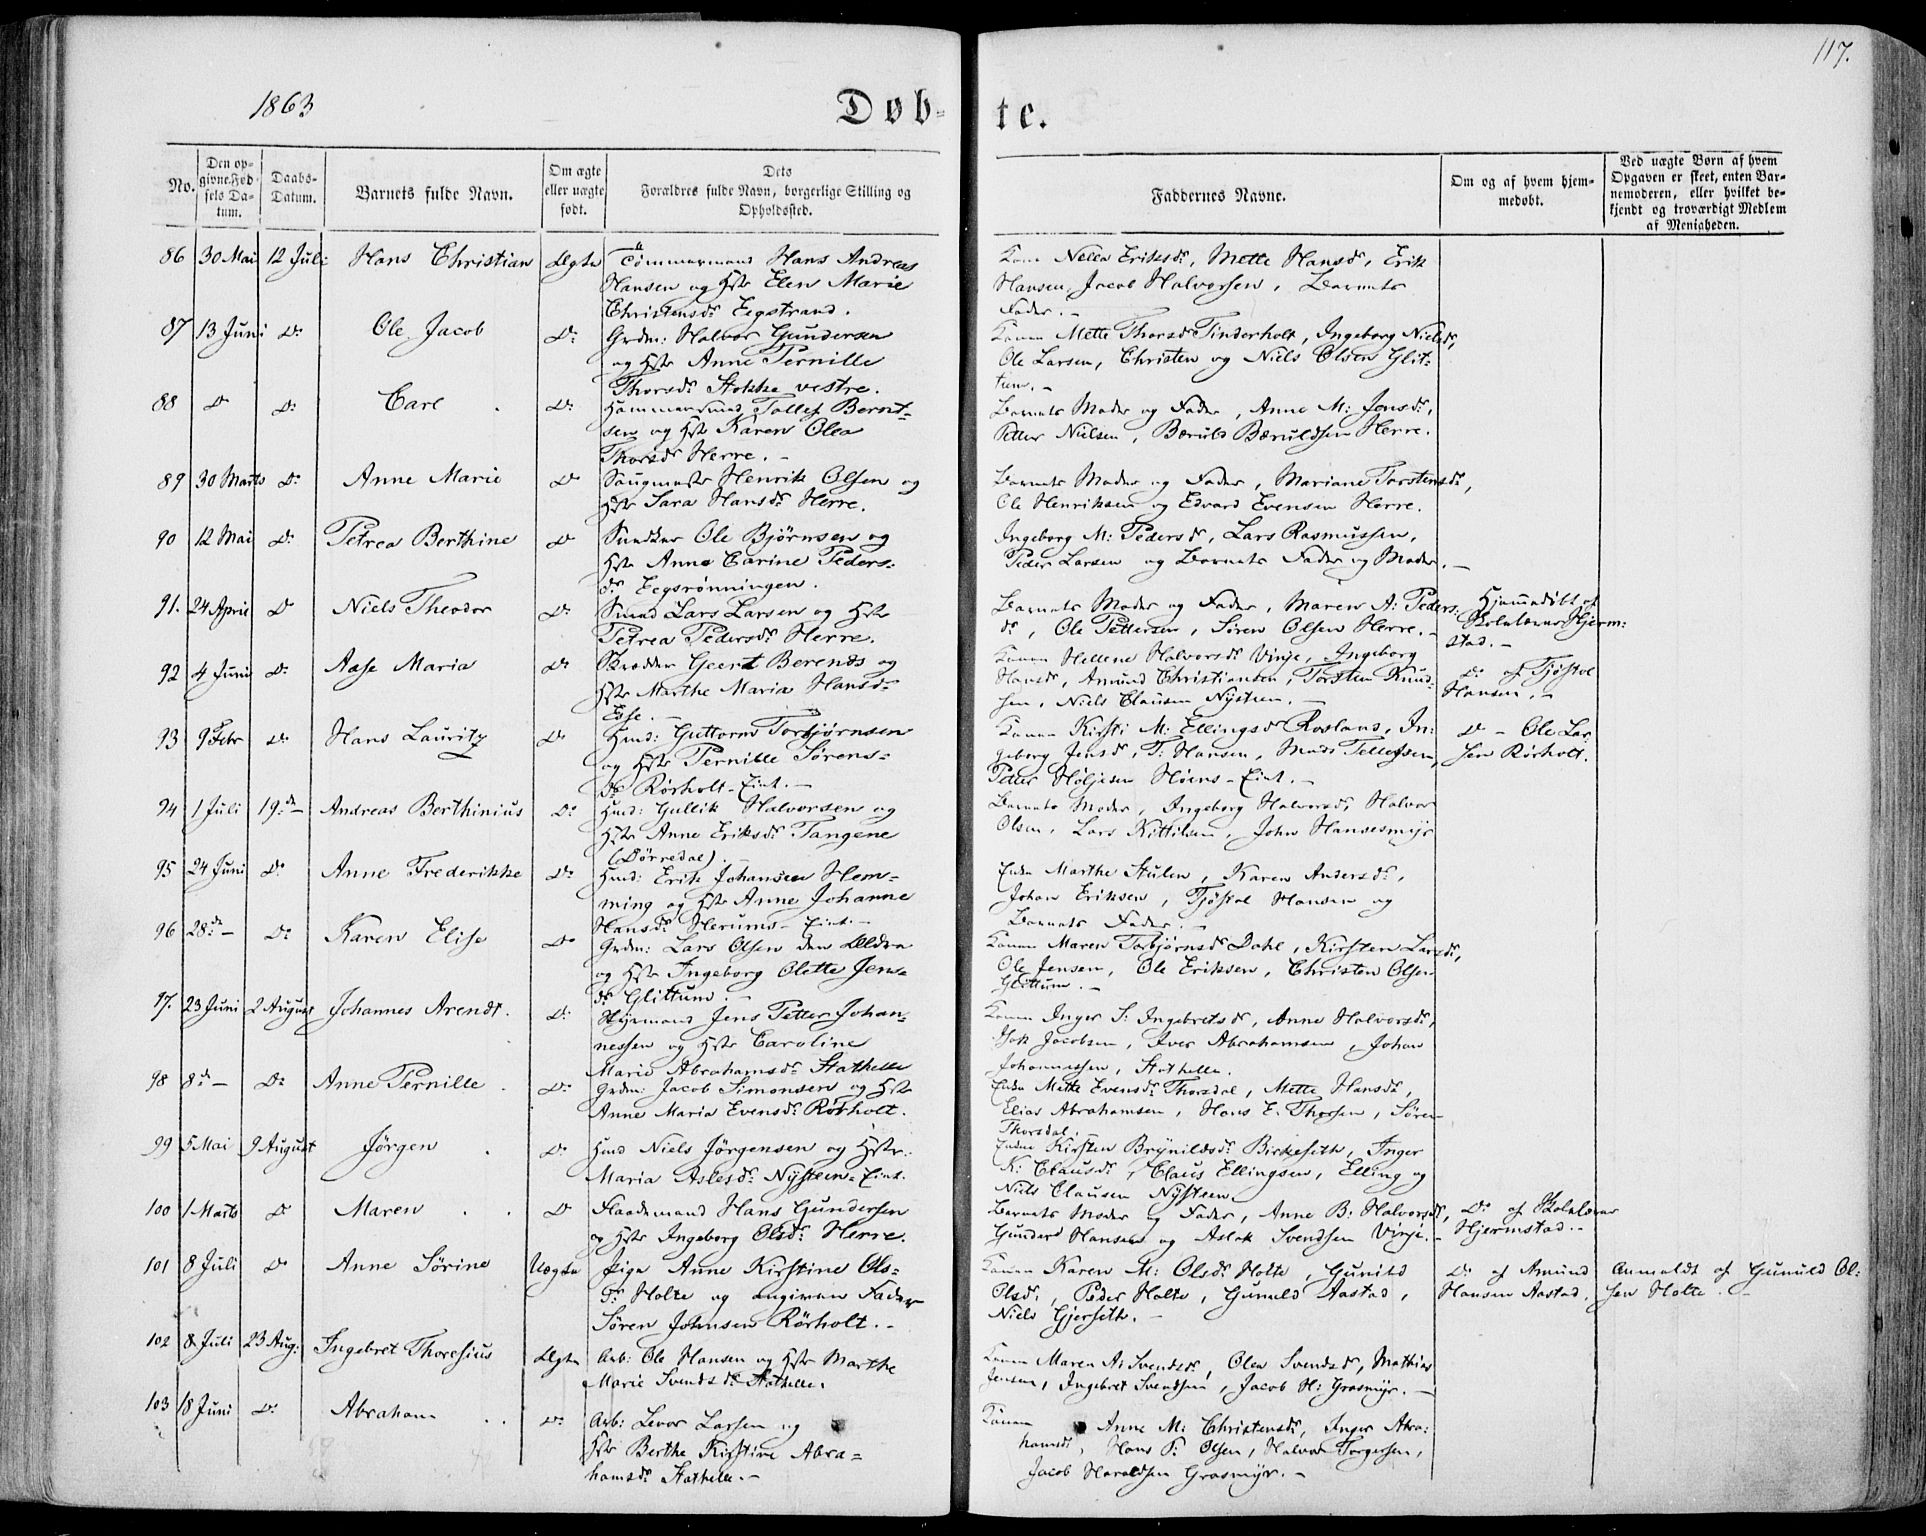 117.
1863
Døb-
te.
No.
Den opgivne Fødsels Datum.
Daabs-Datum.
Barnets fulde Navn.
Om ægte eller uægte født.
Dets
Forældres fulde Navn, borgerlige Stilling og
Opholdssted.
Faddernes Navne.
Om og af hvem hjemmedøbt.
Ved uægte Børn af hvem
Opgaven er skeet, enten Barnemoderen, eller hvilket bekjendt og troværdigt Medlem
af Menigheden.
86 30 Mai 12 Juli Hans Christian Ægte Tömmermand Hans Andreas
Hansen og Hst Elen Marie
Christensdr Eegstrand.
Kone Nella Eriksdr, Mette Hansdr, Erik
Hansen, Jacob Halvorsen, Barnets
Fader.-
87 13 Juni Do Ole Jacob Do Grdm: Halvor Gundersen
og Hst Anne Pernille
Thorsdr Stokke vestre.
Konen Mette Thorsdr Tinderholt, Ingeborg Nielsdr,
Ole Larsen, Christen og Niels Olsen Glit-
tum.-
88 Do Do Carl Do Hammersmed Tollef Bernt-
sen og Hst Karen Olea
Thorsdr Herre.-
Barnets Moder og Fader, Anne M: Jensdr,
Petter Nielsen, Bærulf Bærulfsen Herre.
89 30 Marts Do Anne Marie Do Saugmester Henrik Olsen og
Hst Sara Hansdr Herre.
Barnets Moder og Fader, Mariane Torstensdr,
Ole Henriksen og Edvard Evensen Herre.
90 12 Mai Do Petrea Berthine Do Snedker Ole Bjørnsen og
Hst Anne Carine Peders-
dr Eegsrønningen.
Ingeborg M: Pedersdr, Lars Rasmussen,
Peder Larsen og Barnets Fader og Moder.-
91. 24 April Do Niels Theodor Do Smed Lars Larsen og Hst
Petrea Pedersdr Herre.
Barnets Moder og Fader, Maren A: Peders:
dr, Ole Pettersen, Søren Olsen Herre.-
Hjemmedøbt af
Skolelærer Hjerm:
stad.-
92 4 Juni Do Aase Maria Do Skrædder Geert Berends og
Hst Marthe Maria Hansdr
Esse.-
Konen Hellene Halvorsdr Vinje, Ingeborg
Hansdr, Amund Christiansen, Torsten Knud-
sen, Niels Clausen Nysteen.-
Do af Tjøstol
Hansen.-
93 9 Febr Do Hans Lauritz Do Husm: Guttorm Torbjørnsen
og Hst Pernille Sørens-
dr Rørholt-Eint.-
Konen Kirsti M: Ellingsdr Rosland, In:
geborg Jensdr, T: Hansen, Mads Tellefsen,
Peter Høljesen Høens-Eint.-
Do - Ole Lar-
sen Rørholt.
94 1 Juli 19.de- Andreas Berthinius Do Husm: Gullik Halvorsen og
Hst Anne Eriksdr Tangene
(Dørredal).-
Barnets Moder, Ingeborg Halvorsdr, Halvor
Olsen, Lars Kittilsen, John Hansesmyr
95 24 Juni Do Anne Frederikke Do Husm: Erik Johansen Hem-
ming og Hst Anne Johanne
Hansdr Herums-Eint.-
Enke Marthe Stulen, Karen Andersdr,
Johan Eriksen, Tjøstol Hansen og
Barnets Fader.-
96 28.de- Do Karen Elise Do Grdm: Lars Olsen den Ældre
og Hst Ingeborg Olette Jens-
dr Glittum.
Konen Maren Torbjørnsdr Dahl, Kirsten Larsdr,
Ole Jensen, Ole Eriksen, Christen Olsen
Glittum.-
97. 23 Juni 2 August Johannes Arendt. Do Styrmand Jens Petter Johan-
nessen og Hst Caroline
Marie Abrahamsdr Stathelle
Konen Inger S: Ingebretsdr, Anne Halvorsdr,
Isak Jacobsen, Iver Abrahamsen, Johan
Johannessen, Stathelle.
98 8de- Do Anne Pernille Do Grdm: Jacob Simonsen og Hst
Anne Maria Evensdr Rørholt.
Enke Mette Evensdr Thorsdal, Mette Hansdr,
Elias Abrahamsen, Hans E. Thorsen, Søren
Thorsdal.-
99 5 Mai 9 August Jørgen Do Husm Niels Jørgensen og Hstr:
Maria Aslesdr Nysteen-Eint.
Enken Kirsten Brynildsdr Birkeseth, Inger
K: Clausdr, Claus Ellingsen, Elling og
Niels Clausen Nysteen.
100 1 Marts Do Maren Do Flaademand Hans Gundersen
og Hst Ingeborg Olsdr Herre.
Barnets Moder og Fader, Anne B: Halvorsdr,
Gunder Hansen og Aslak Svendsen Vinje.-
Do af Skolelærer
Hjermstad.-
101 8 Juli Do Anne Sørine Uægte Pige Anne Kirstine Ols-
dr Holte og angiven Fader
Søren Johnsen Rørholt.-
Konen Karen M: Olsdr Holte, Gunild
Olsdr, Peder Holte, Gunuld Aastad,
Niels Gjerseth.-
Do af Amund
Hansen Aastad.
Anmeldt af Gunuld Ol:
sen Holte.-
102 8 Juli 23 Aug: Ingebret Thoresius Ægte Arb: Ole Hansen og Hst Marthe
Marie Svendsdr Stathelle.
Konen Maren A: Svendsdr, Olea Svendsdr, Mathias
Jensen, Ingebret Svendsen, Jacob H: Grasmyr.-
103 18 Juni Do Abraham Do Arb: Levor Larsen og
Hst Berthe Kirstine Abra-
hamsdr Stathelle.-
Konen Anne M: Christensdr, Inger Abra:
hamsdr, Hans P. Olsen, Halvor Torgersen,
Jacob Haraldsen Grasmyr.-